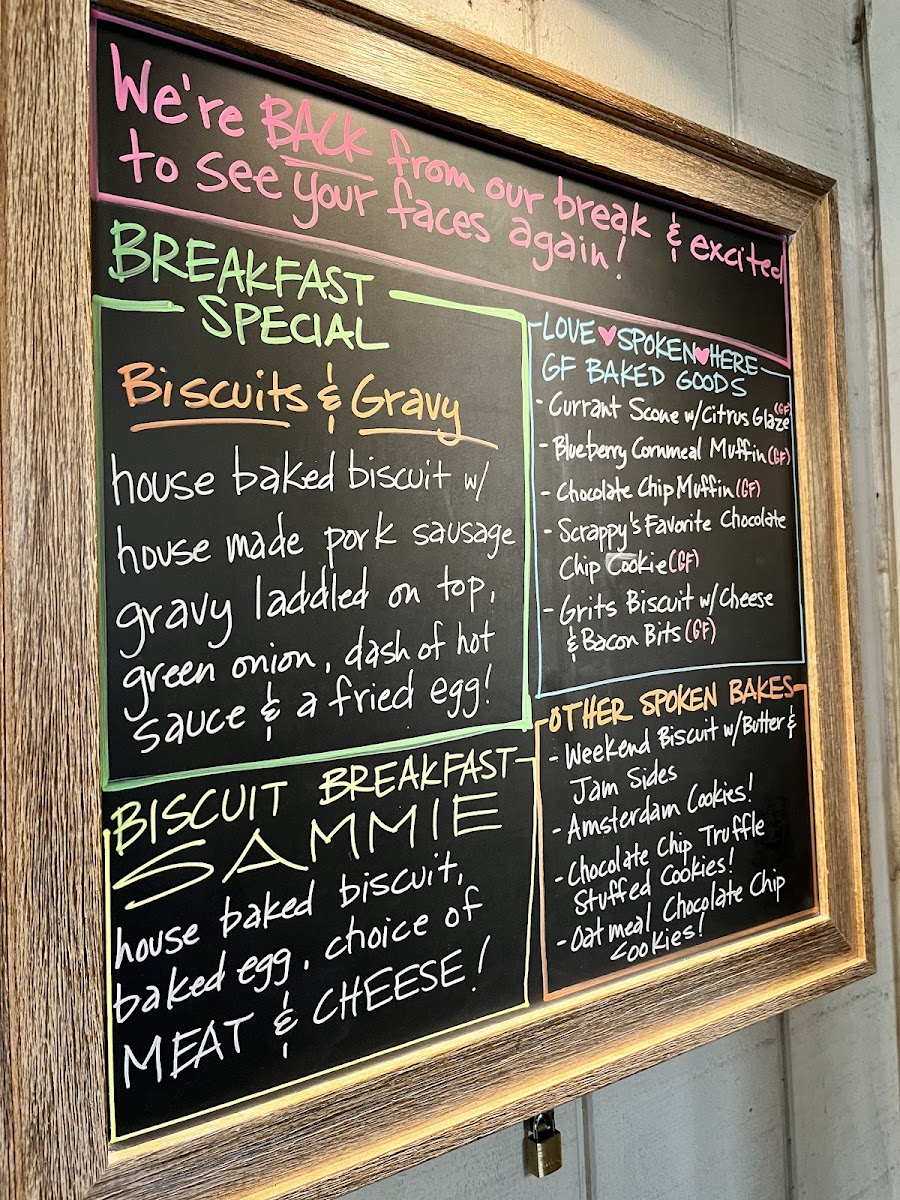 We're BACK from our break & excited
to see your faces again!
BREAKFAST
SPECIAL
Biscuits & Gravy
house baked biscuit w/
house made pork sausage
gravy laddled on top,
green onion, dash of hot
sauce & a fried egg!
BISCUIT BREAKFAST
SAMMIE
house baked biscuit,
baked egg, choice of
MEAT & CHEESE!
LOVE ♥ SPOKEN ♥ HERE
GF BAKED GOODS
- Currant Scone w/Citrus Glaze (GF)
- Blueberry Cornmeal Muffin (GF)
- Chocolate Chip Muffin (GF)
- Scrappy's Favorite Chocolate
Chip Cookie (GF)
- Grits Biscuit w/Cheese
& Bacon Bits (GF)
OTHER SPOKEN BAKES
- Weekend Biscuit w/Butter &
Jam Sides
- Amsterdam Cookies!
- Chocolate Chip Truffle
Stuffed Cookies!
- Oatmeal Chocolate Chip
Cookies!